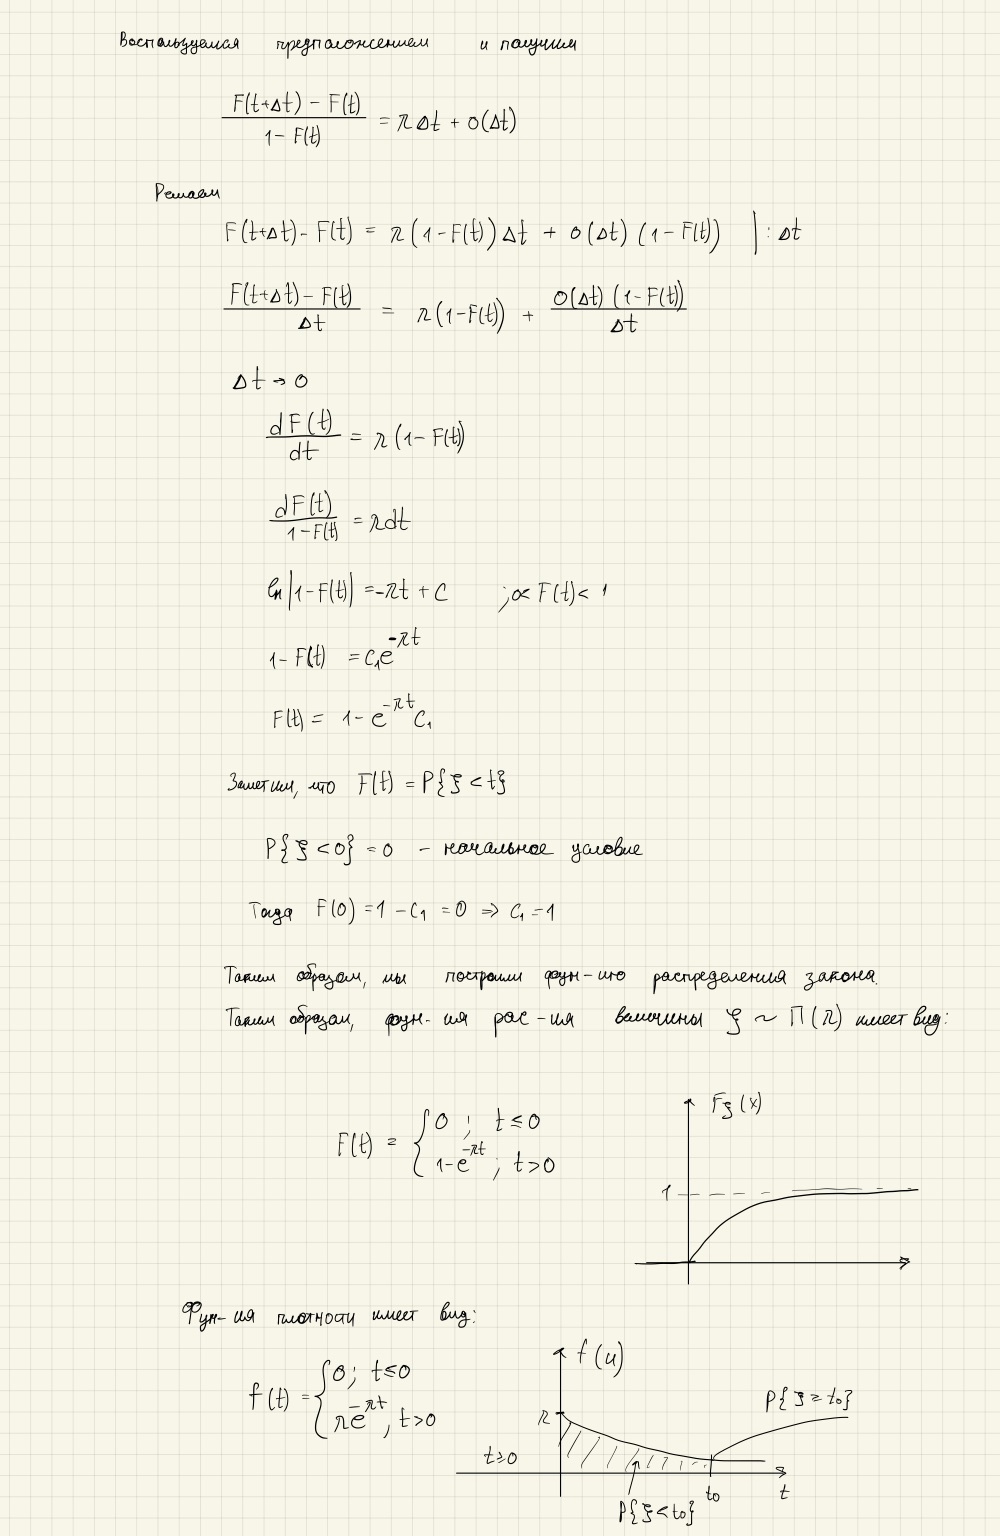 Воспользуемся предположением и получим
F(t+Δt) − F(t) / 1 − F(t) = λΔt + o(Δt)
Решаем
F(t+Δt) − F(t) = λ(1−F(t))Δt + o(Δt)(1−F(t)) | : Δt
F(t+Δt) − F(t) / Δt = λ(1−F(t)) + o(Δt)(1−F(t)) / Δt
Δt → 0
dF(t) / dt = λ(1−F(t))
dF(t) / 1−F(t) = λdt
ln|1−F(t)| = −λt + C ; 0< F(t)< 1
1−F(t) = C₁e^{−λt}
F(t) = 1 − e^{−λt}C₁
Заметим, что F(t) = P{ξ < t}
P{ξ < 0} = 0 – начальное условие
Тогда F(0) = 1 − C₁ = 0 ⇒ C₁ = 1
Таким образом, мы построили фун-ию распределения закона.
Таким образом, фун-ия рас-ия величины ξ ~ П(λ) имеет вид:
F(t) = { 0 ; t ≤ 0
1−e^{−λt} ; t>0
F_ξ(x)
1
Фун-ия плотности имеет вид:
f(t) = { 0; t≤0
λe^{−λt}, t>0
f(u)
λ
P{ξ ≥ t₀}
t≥0
t₀
t
P{ξ< t₀}